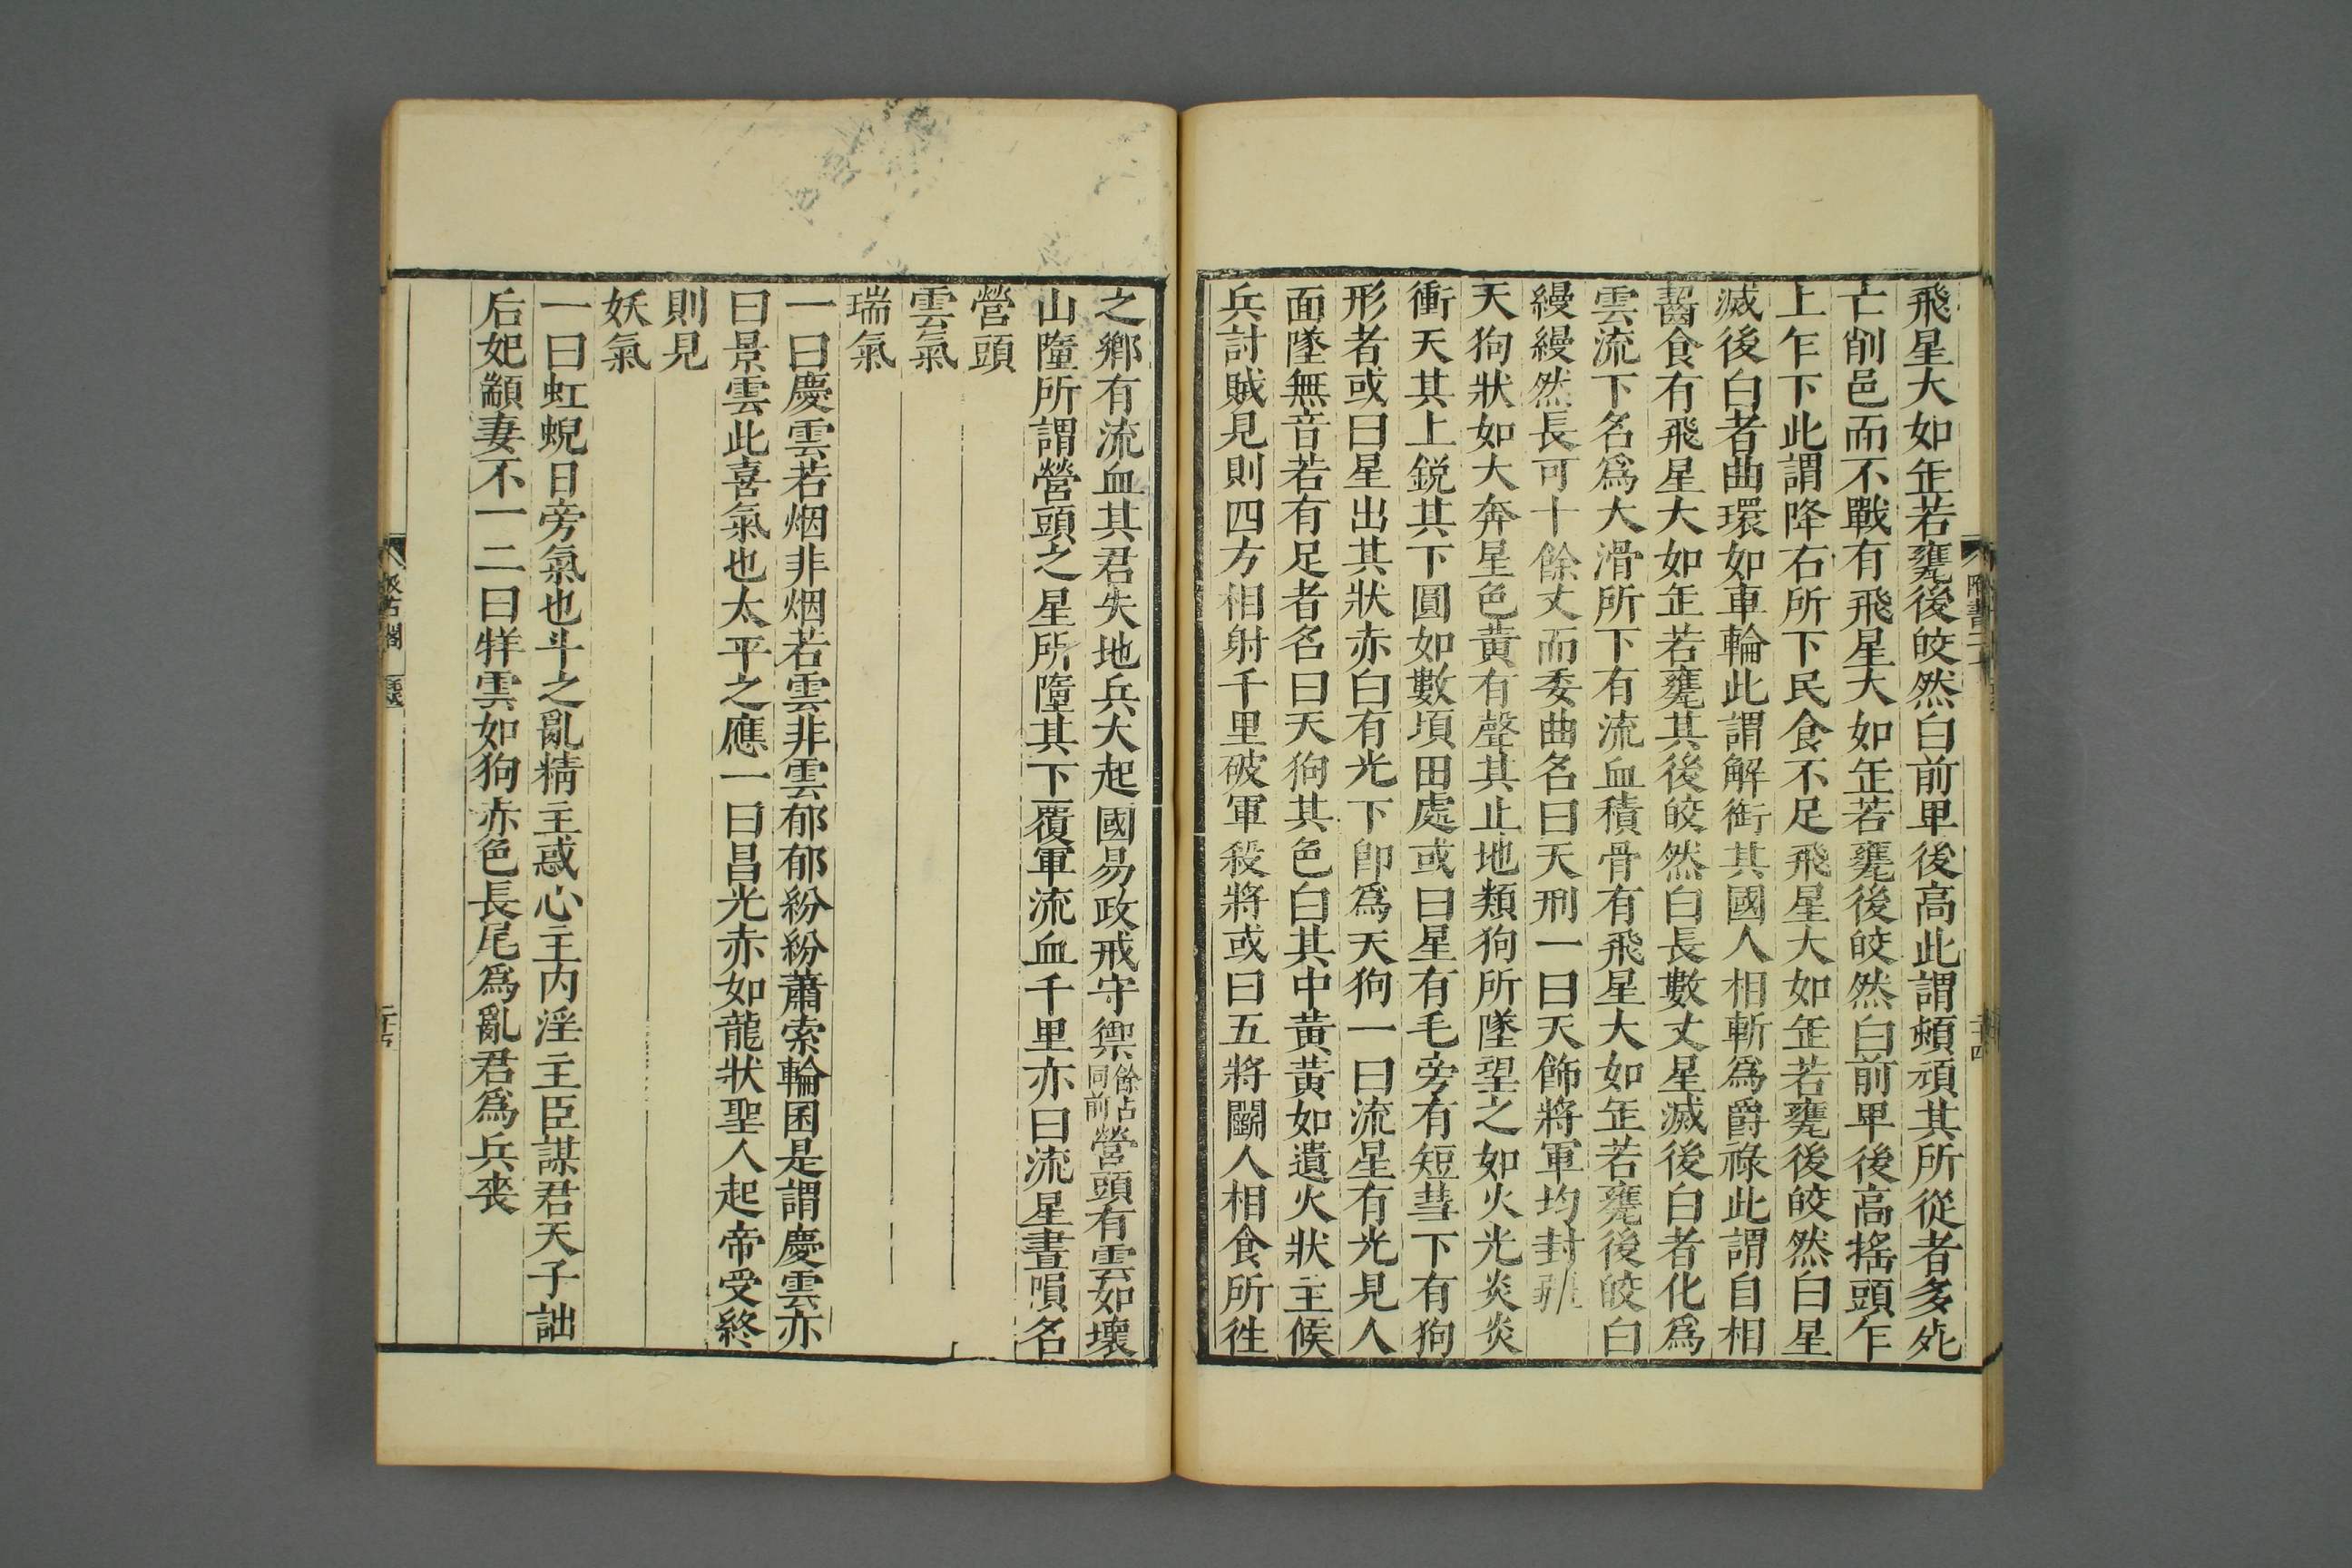 飛星大如缶若甕後皎然白前卑後高此謂頓頑其所從者多死
亡削邑而不戰有飛星大如缶若甕後皎然白前卑後高搖頭乍
上乍下此謂降石所下民食不足飛星大如缶若甕後皎然白星
滅後白者曲環如車輪此謂解銜其國人相斬爲爵祿此謂自相
齧食有飛星大如缶若甕其後皎然白長數丈星滅後白者化爲
雲流下名爲大滑所下有流血積骨有飛星大如缶若甕後皎白
縵縵然長可十餘丈而委曲名曰天刑一曰天飾將軍均封疆
天狗狀如大奔星色黃有聲其止地類狗所墜望之如火光炎炎
衝天其上銳其下圓如數頃田處或曰星有毛旁有短彗下有狗
形者或曰星出其狀赤白有光下卽爲天狗一曰流星有光見人
面墜無音若有足者名曰天狗其色白其中黃黃如遺火狀主候
兵討賊見則四方相射千里破軍殺將或曰五將鬭人相食所徃
隋書二十
二十四
之鄉有流血其君失地兵大起國易政戒守禦餘占同前營頭有雲如壞
山墮所謂營頭之星所墮其下覆軍流血千里亦曰流星晝隕名
營頭
雲氣
瑞氣
一曰慶雲若烟非烟若雲非雲郁郁紛紛蕭索輪囷是謂慶雲亦
曰景雲此喜氣也太平之應一曰昌光赤如龍狀聖人起帝受終
則見
妖氣
一曰虹蜺日旁氣也斗之亂精主惑心主内淫主臣謀君天子詘
后妃顓妻不一二曰牂雲如狗赤色長尾爲亂君爲兵喪
汲古閣
二十五